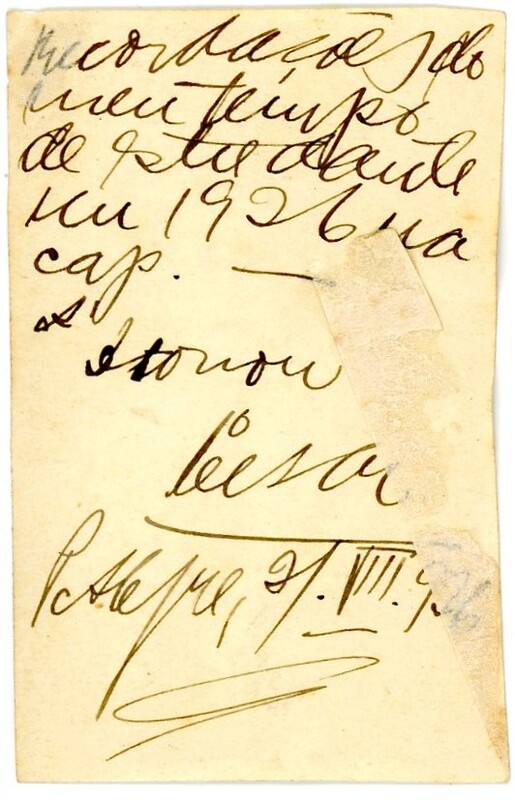 Recordações do
meu tempo
de estudante
em 1926 na
cap. —
A'
César
P. Alegre, 21. VIII.